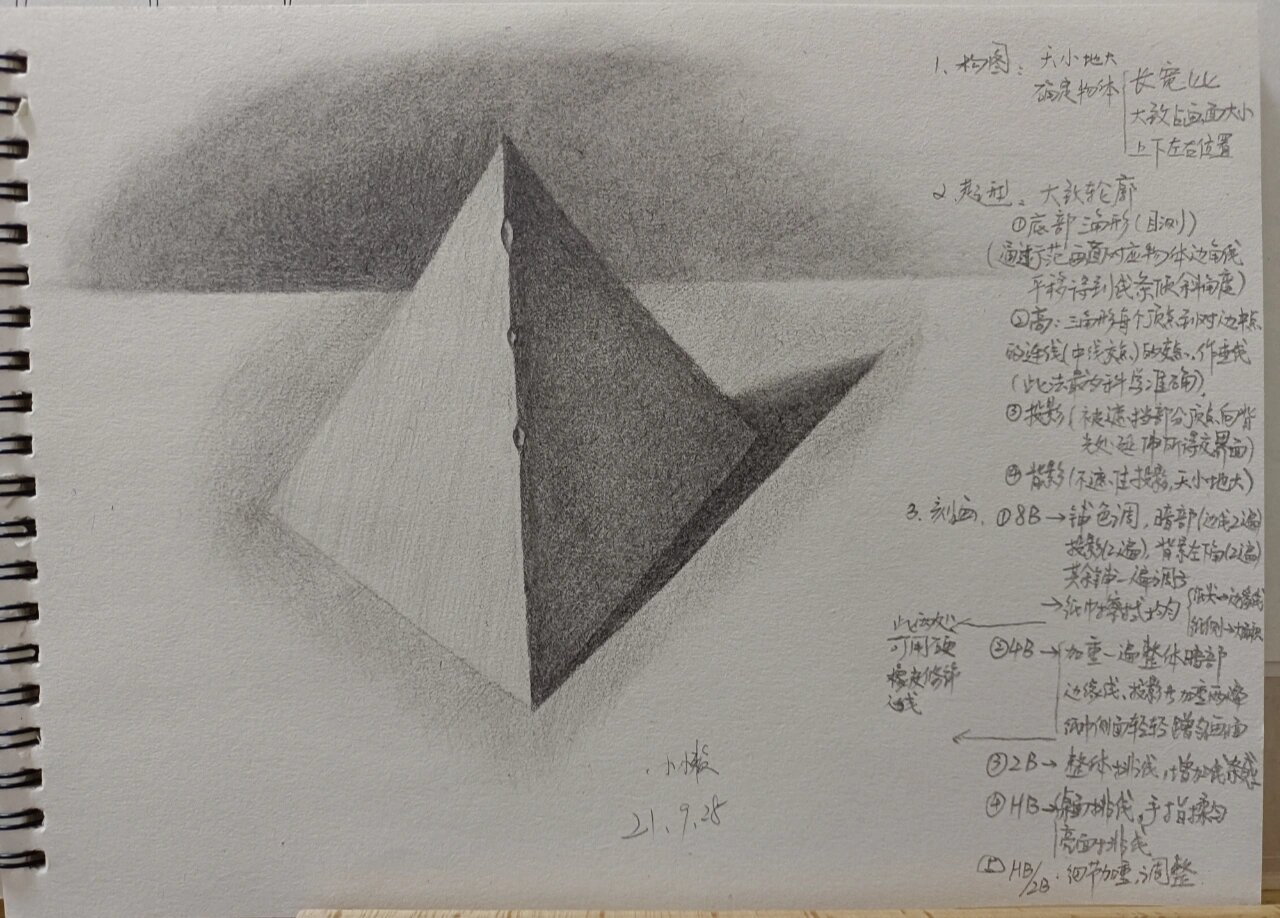 1. 构图: 天小地大
确定物体 长宽比
大致占画面大小
上下左右位置
2. 起型: 大致轮廓
①底部三角形(目测)
(通过示范画面对应物体边角线
平移得到线条倾斜角度)
②高:三角形每个顶点到对边中点
的连线(中线交点)的交点,作垂线
(此法最为科学准确)
③投影(被遮挡部分顶点向背
光处延伸所得交界面)
④背影(不遮住投影,天小地大)
3. 刻画 ①8B→铺色调,暗部(边线2遍)
投影(2遍),背景左下角(2遍)
其余铺一遍调子
→纸巾擦拭均匀
此两处
可用硬
橡皮修饰
边线
②4B→加重一遍整体暗部
边缘线、投影加重两遍
纸巾侧面轻轻蹭匀画面
③2B→整体排线,增加线条感
④HB→ 排线,手指揉匀
亮面排线
⑤HB/2B·细节加重,调整
小懒
21.9.28